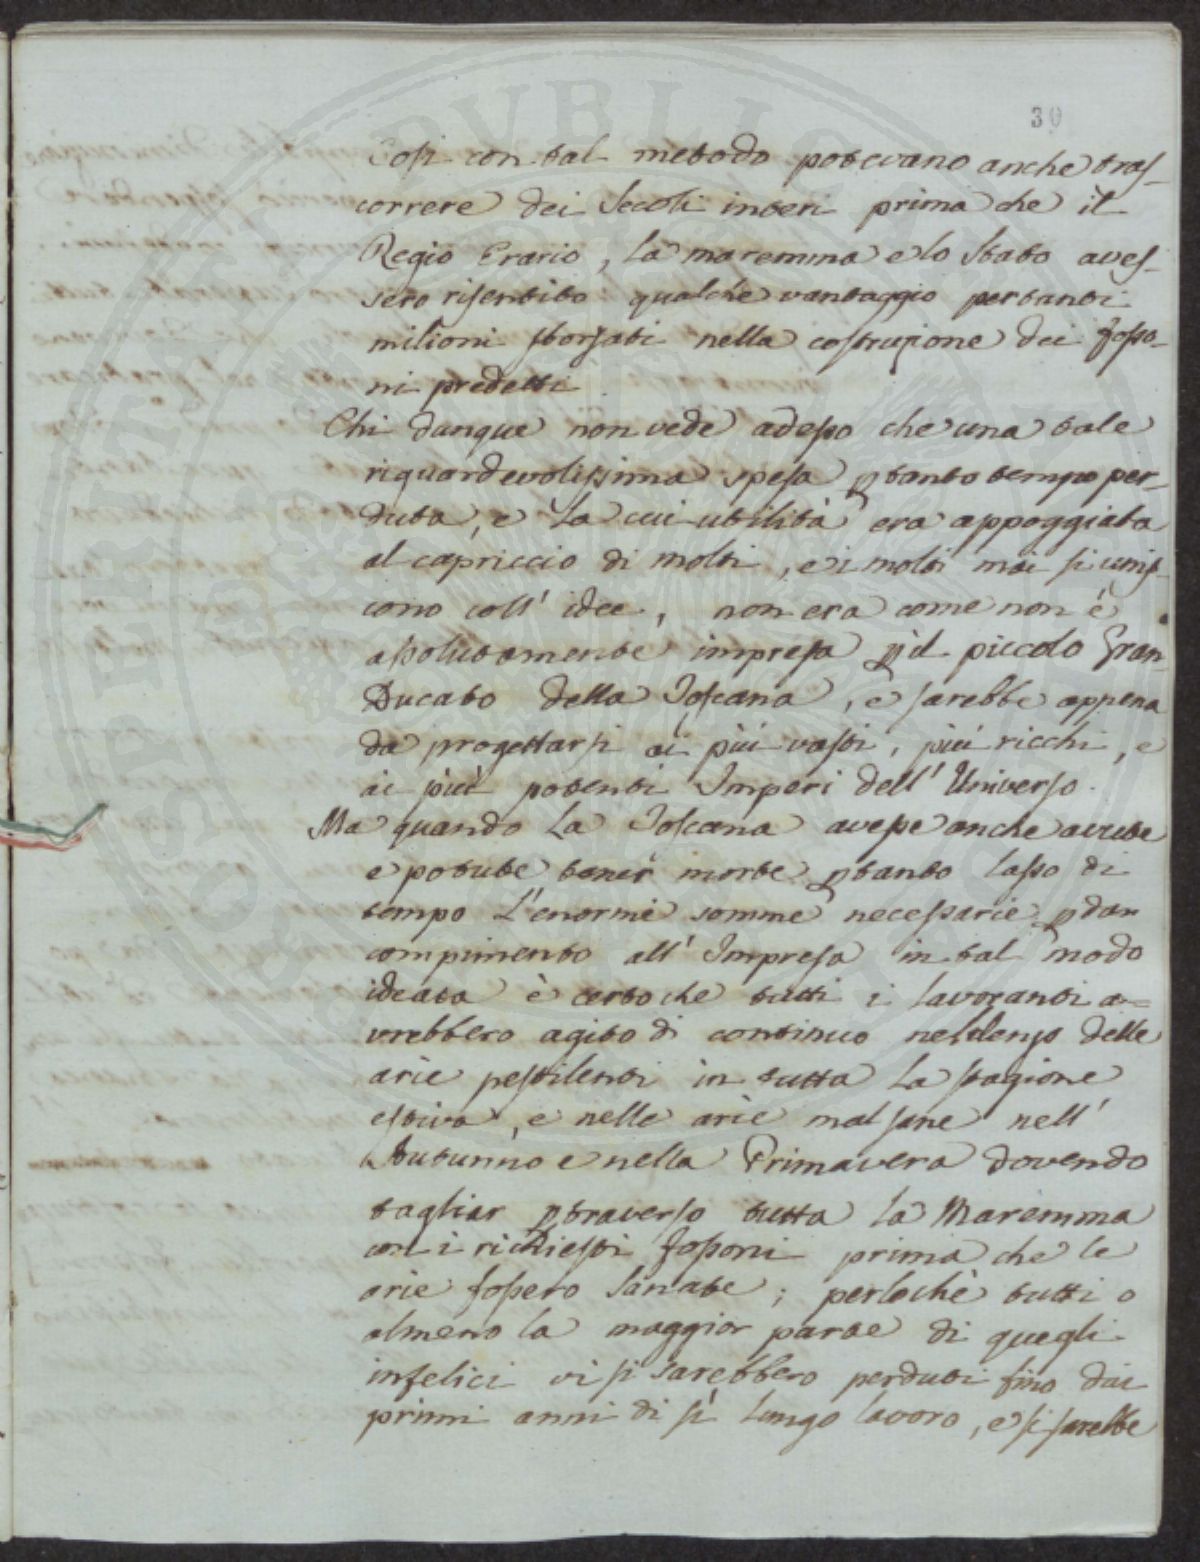 30
Così con tal metodo potevano anche tras-
correre dei Secoli interi prima che il
Regio Erario, la maremma e lo Stato aves-
sero risentito qualche vantaggio per tanti
milioni sborsati nella costruzione dei fosso-
ni predetti
Chi dunque non vede adesso che una tale
riguardevolissima spesa p tanto tempo per-
duta, e la cui utilità era appoggiata
al capriccio di molti, e i molti mai si unis-
cono coll' idee, non era come non è
assolutamente impresa p il piccolo Gran
Ducato della Toscana, e sarebbe appena
da progettarsi ai più vasti, più ricchi, e
ai più potenti Imperi dell' Universo.
Ma quando la Toscana avesse anche avute
e potute tener morte p tanto lasso di
tempo l'enormi somme necessarie p dar
compimento all' Impresa in tal modo
ideata è certo che tutti i lavoranti a-
vrebbero agito di continuo nel denso delle
arie pestilenti in tutta la stagione
estiva, e nelle arie mal sane nell'
Autunno e nella Primavera dovendo
tagliar p traverso tutta la Maremma
con i richiesti fossoni prima che le
arie fossero sanate; perlochè tutti o
almeno la maggior parte di quegli
infelici vi si sarebbero perduti fino dai
primi anni di sì lungo lavoro, e si sarebbe